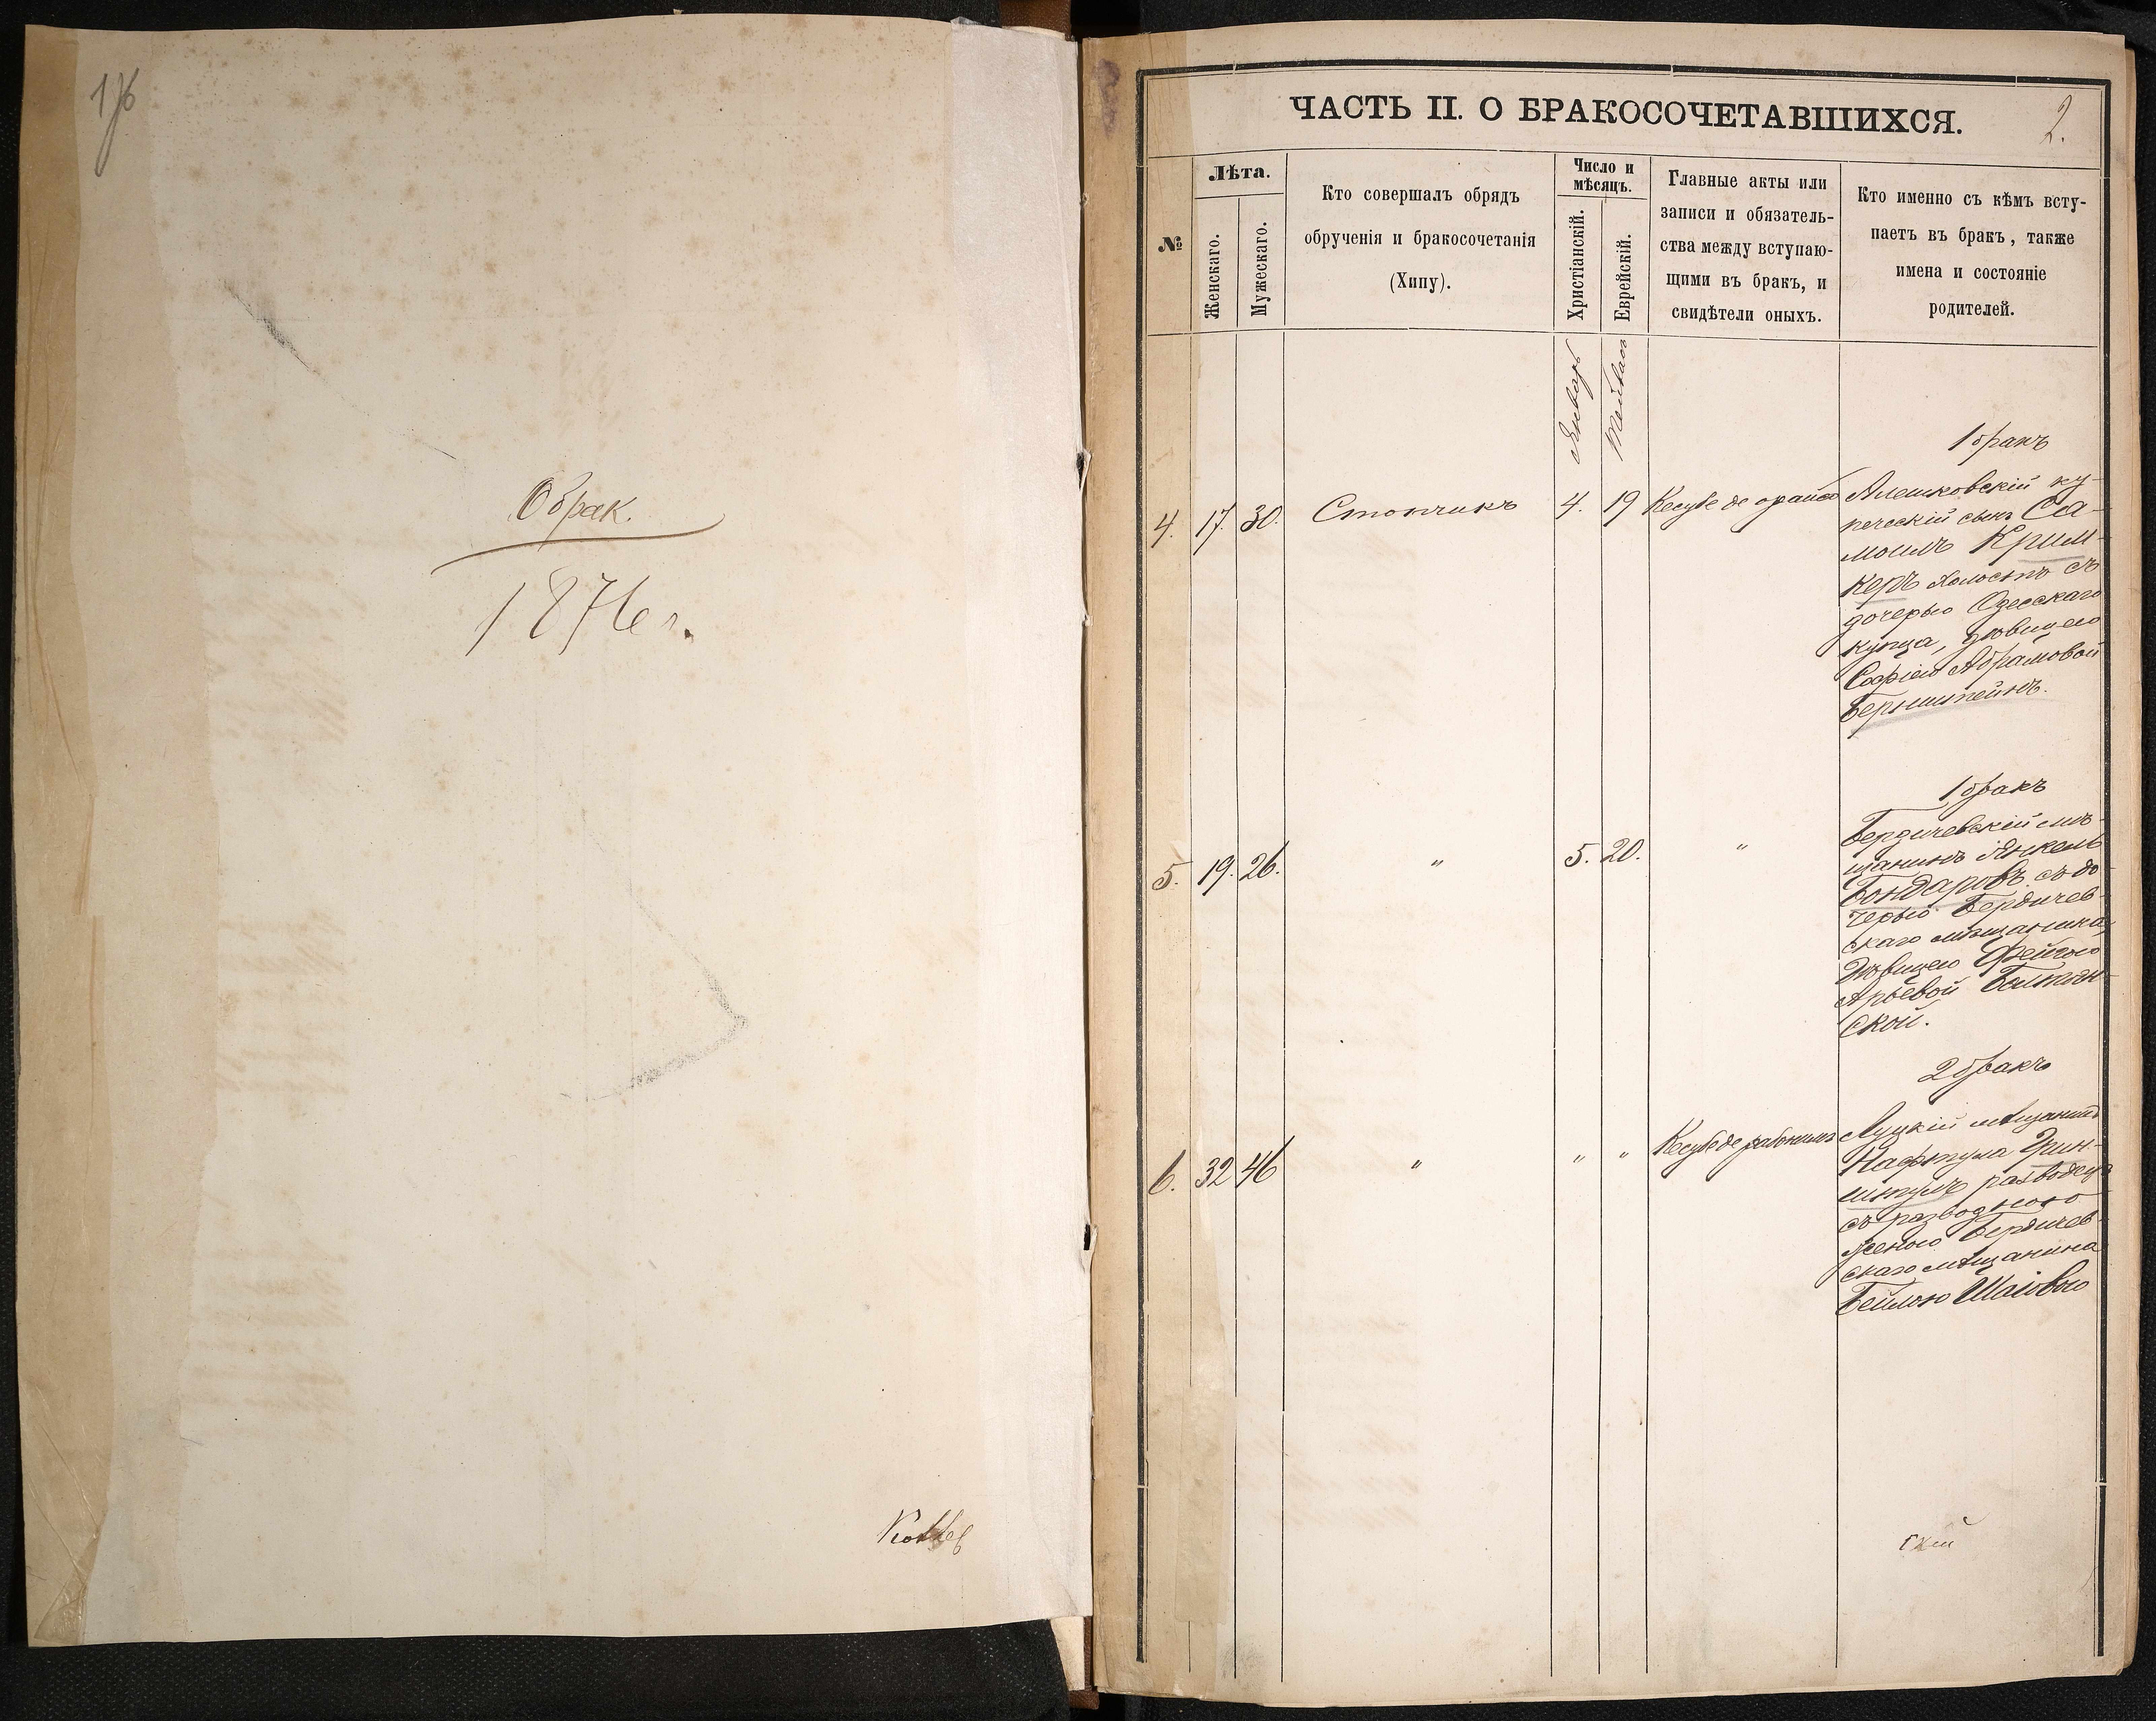 176
О брак.
1876 г.
ЧАСТЬ II. О БРАКОСОЧЕТАВШИХСЯ.
2.
№
Лѣта.
Женскаго.
Мужескаго.
Кто совершалъ обрядъ
обрученія и бракосочетанія
(Хипу).
Число и
мѣсяцъ.
Христіанскій.
Еврейскій.
Главные акты или
записи и обязатель-
ства между вступаю-
щими въ бракъ, и
свидѣтели оныхъ.
Кто именно съ кѣмъ всту-
паетъ въ бракъ, также
имена и состояніе
родителей.
Январь
4.
17.
30.
Стончикъ
4.
19
Кесубе де орайсо
1 бракъ
Алешковскій ку-
печескій сынъ Са-
моилъ Крим-
керъ холостъ съ
дочерью Одесскаго
купца, дѣвицею
Софіею Абрамовой
Бернштейнъ.
5.
19.
26.
"
5.
20.
"
1 бракъ
Бердичевскій мѣ-
щанинъ Янкель
Бондаровъ съ до-
черью Бердичев-
скаго мѣщанина,
дѣвицею Фейгою
Арьевой
ской.
6.
32
46
"
"
"
Кесубе де
2 бракъ
Луцкій мѣщанинъ
Нафтула
разводецъ
съ разводною
женою Бердичев-
скаго мѣщанина
Бейлою Шаіовою
скій